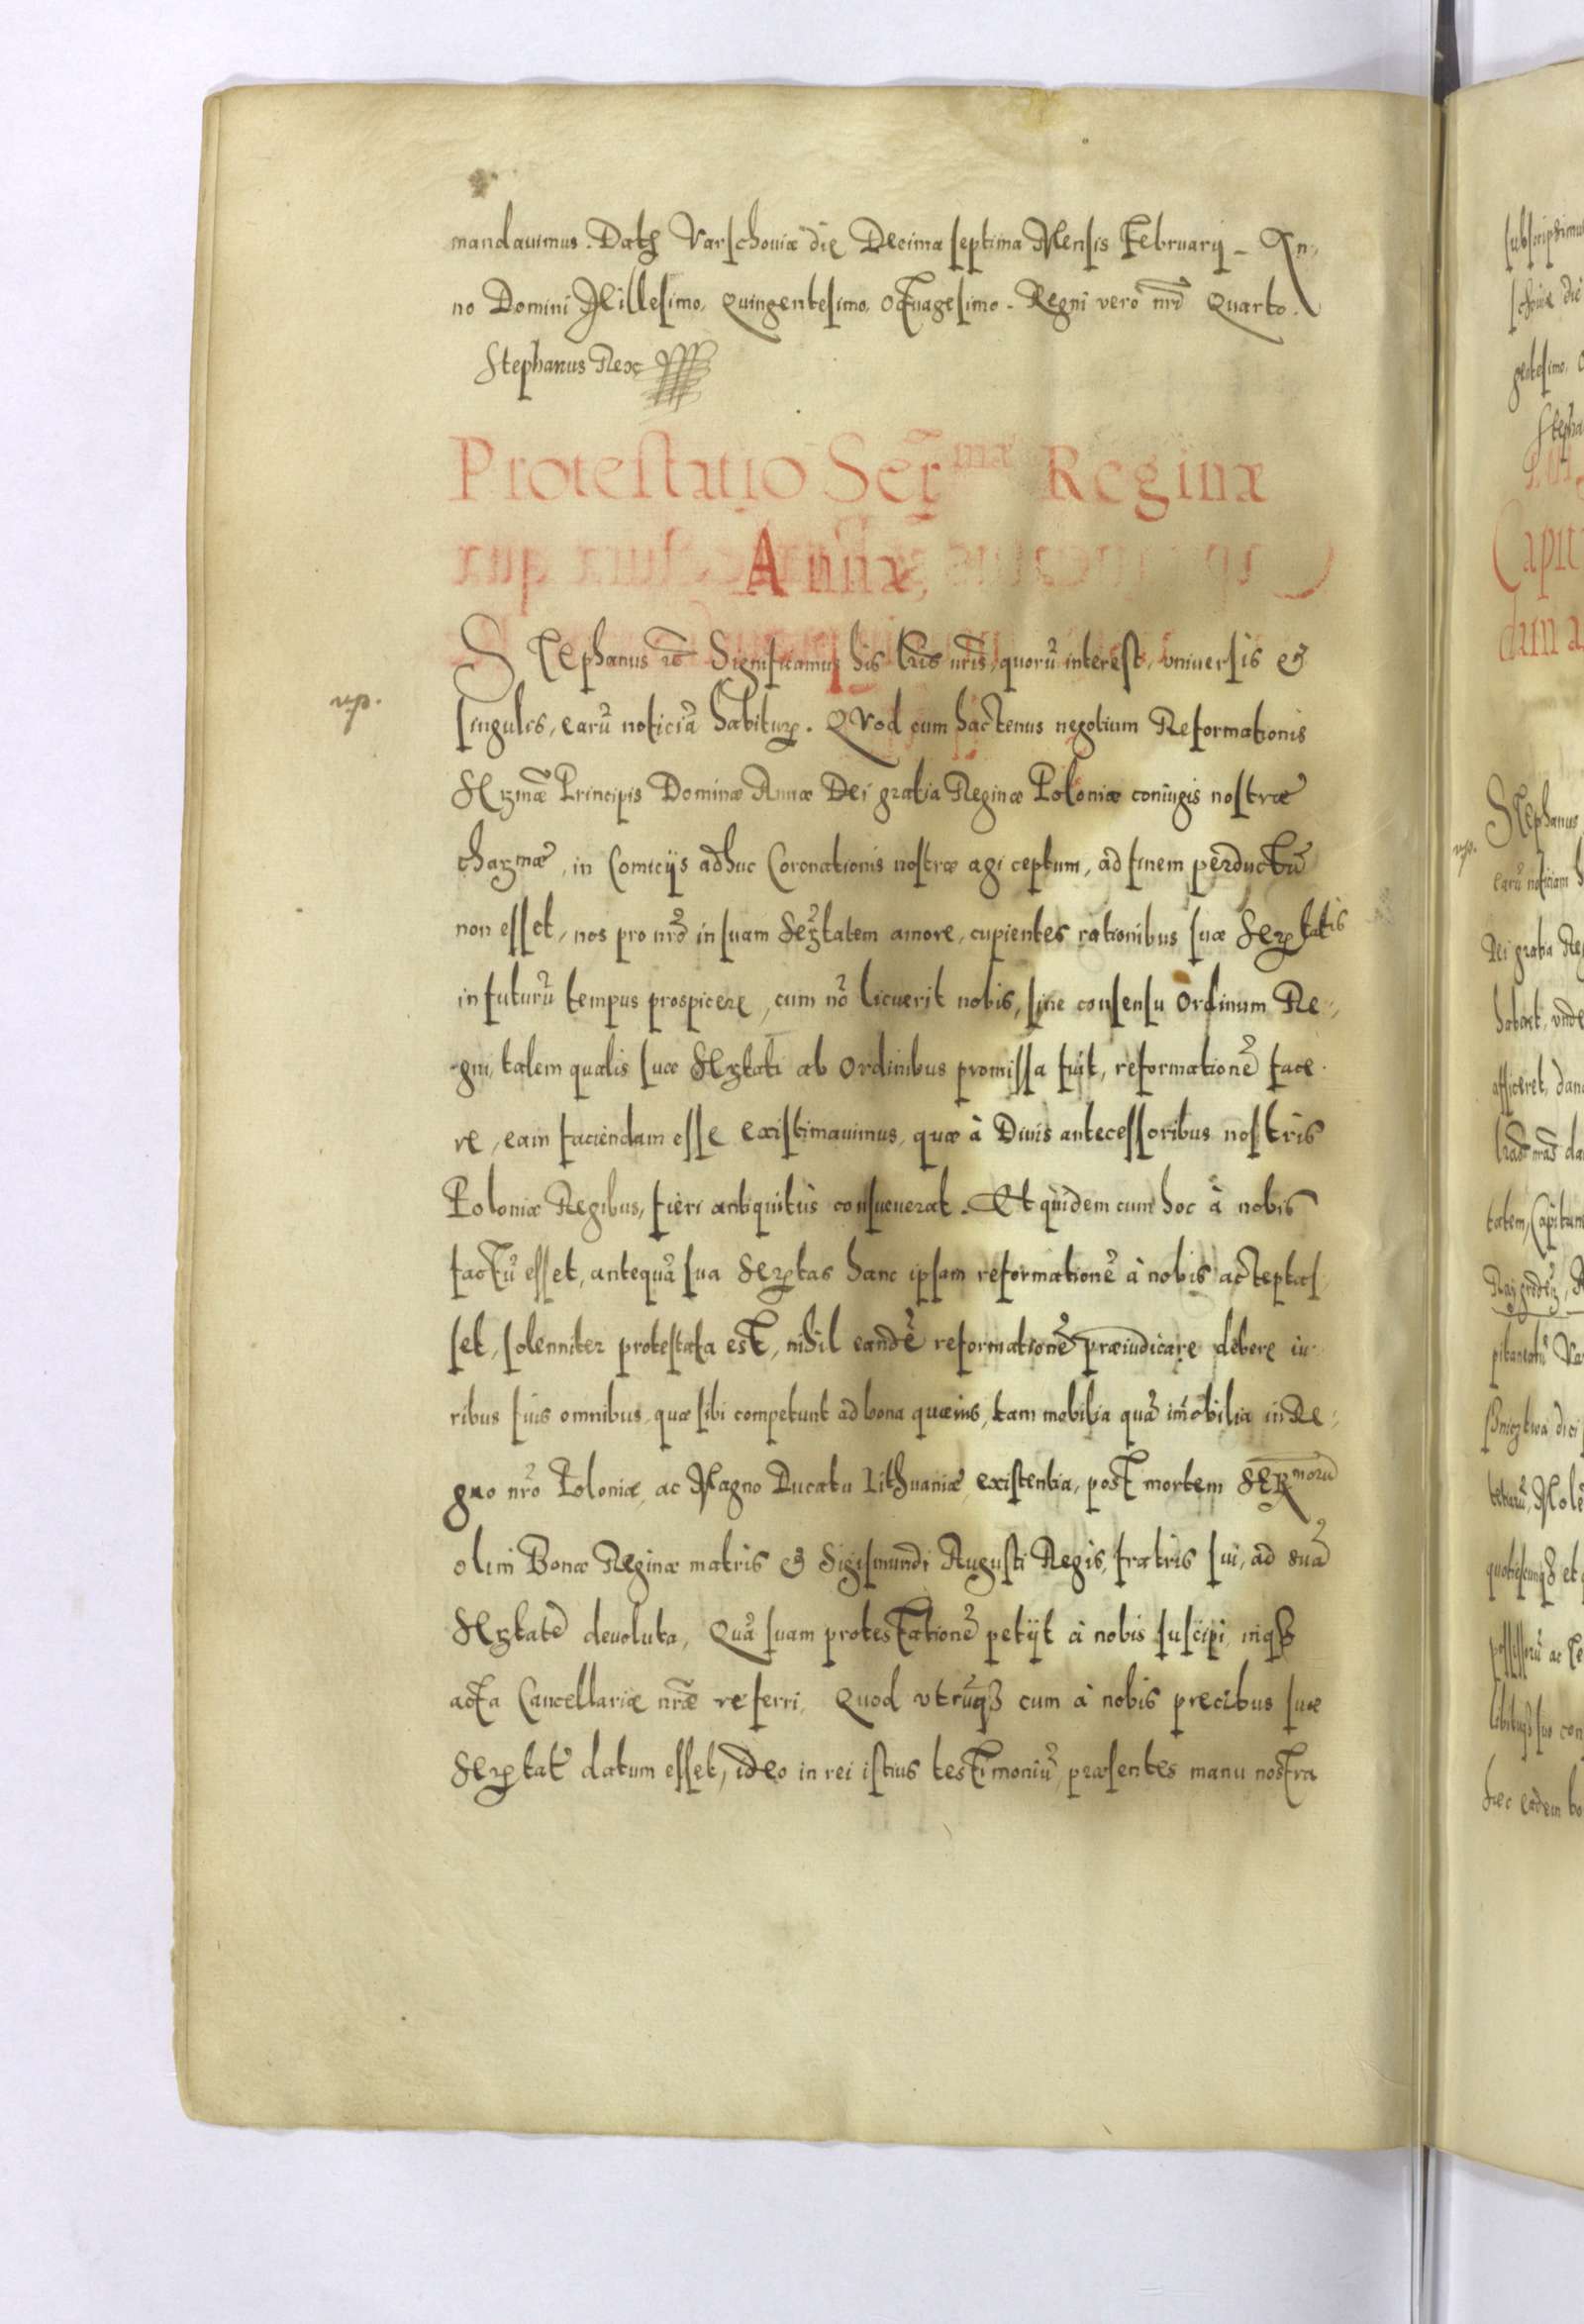 mandauimus. Datꝫ Varſchouiæ die Decima ſeptima Menſis Februarij – An,
no Domini Milleſimo, Quingenteſimo, octuageſimo. Regni vero nr̃i Quarto.
Stephanus Rex
Proteſtatio Ser̃mæ Reginæ
Annæ,
Stephanus ꝛc̃ Significamus his lr̃is nr̃is, quorũ intereſt, vniuerſis et
ſingulis, earũ noticiã habituꝝ. QVod cum hactenus negotium Reformationis
Serꝫmæ Principis Dominæ Annæ Dei gratia Reginæ Poloniæ coniugis noſtræ
chaꝝmæ, in Comicijs adhuc Coronationis noſtræ agi ceptum, ad finem perductũ
non eſſet, nos pro nr̃o in ſuam Serꝫtatem amore, cupientes rationibus ſuæ Seꝝtatis
in futurũ tempus proſpicere, cum nõ licuerit nobis, ſine conſenſu Ordinum Re,,
gni, talem qualis ſuæ Serꝫtati ab Ordinibus promiſſa fuit, reformationẽ face
re, eam faciendam eſſe exiſtimauimus, quæ à Diuis anteceſſoribus noſtris
Poloniæ Regibus, fieri antiquitùs conſueuerat. Et quidem cum hoc à nobis
factũ eſſet, antequã ſua Seꝝtas hanc ipſam reformationẽ à nobis acceptaſ
ſet, ſolenniter proteſtata eſt, nihil eandẽ reformationẽ præiudicare debere iu
ribus ſuis omnibus, quæ ſibi competunt ad bona quæuis, tam mobilia quã im̃obilia in Re,
gno nr̃o Poloniæ, ac Magno Ducatu Lithuaniæ, exiſtentia, poſt mortem Serꝫmorũ
olim Bonæ Reginæ matris et Sigiſmundi Auguſti Regis, fratris ſui, ad ſuã
Serꝫtatẽ deuoluta, Quã ſuam proteſtationẽ petijt à nobis ſuſcipi, inqꝫ
acta Cancellariæ nr̃æ referri, Quod vtrũqꝫ cum à nobis precibus ſuæ
Seꝝtat̃ datum eſſet, ideo in rei iſtius teſtimoniũ præſentes manu noſtra